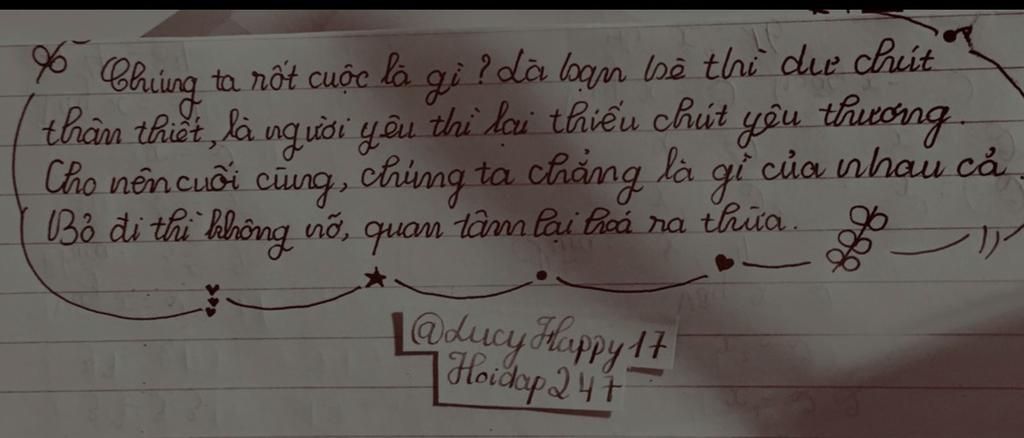 Chúng ta rốt cuộc là gì? Là bạn bè thì dư chút
thân thiết, là người yêu thì lại thiếu chút yêu thương.
Cho nên cuối cùng, chúng ta chẳng là gì của nhau cả.
Bỏ đi thì không nỡ, quan tâm lại hoá ra thừa.
@LucyHappy17
Hoidap247